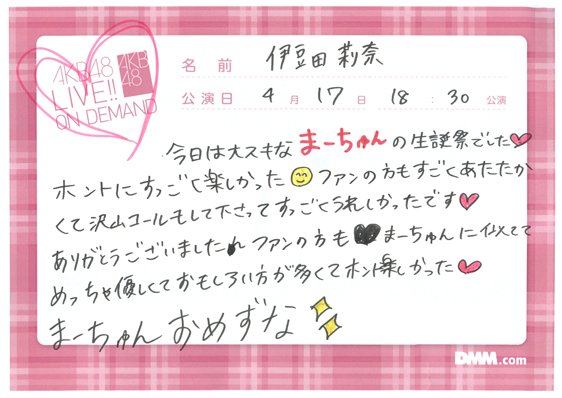 AKB48
LIVE!!
ON DEMAND
AKB
48
名 前 伊豆田 莉奈
公演日 4 月 17 日 18 : 30 公演
今日は大スキな まーちゅん の生誕祭でした♥
ホントにすっごく楽しかった ファンの方もすごくあたたか
くて沢山コールもして下さってすっごくうれしかったです♥
ありがとうございましたれ ファンの方も ♥ まーちゅんに似てて
めっちゃ優しくておもしろい方が多くてホント楽しかった♥
まーちゅん おめずな
DMM.com